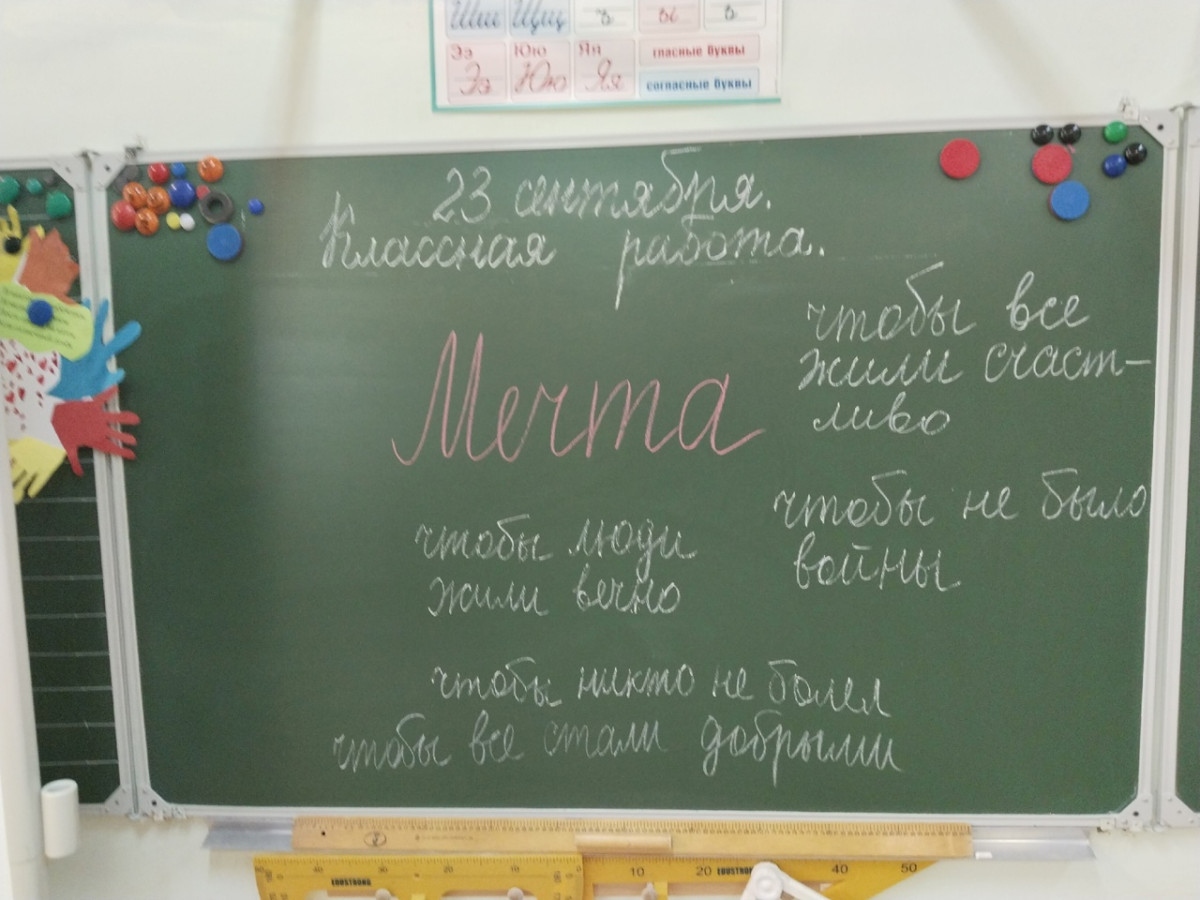 Шш Щщ ь ы ъ
Ээ Юю Яя гласные буквы
Ээ Юю Яя согласные буквы
23 сентября.
Классная работа.
Мечта
чтобы все
жили счаст-
ливо
чтобы не было
войны
чтобы люди
жили вечно
чтобы никто не болел
чтобы все стали добрыми
40 30 20 10
EDUSTRONG
10 20 EDUSTRONG 40 50